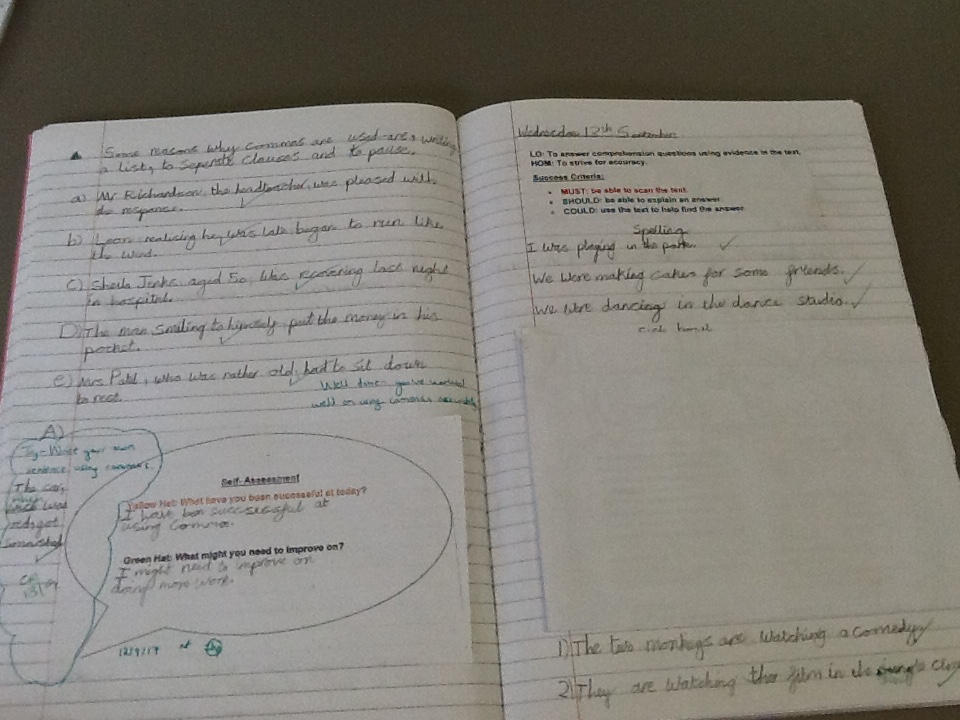 Some reasons why commas are used are, writing
a list, to seperate clauses and to pause.
a) Mr Richardson, the headteacher, was pleased with
the response.
b) Leon realising he, was late began to run like
the wind.
c) Sheila Jenks, aged 50, was recovering last night
in hospital.
D) The man smiling to put the money in his
pocket.
e) Mrs Patel, who was rather old, had to sit down
to rest.
Well done you've worked
well on using commas
A)
Try - Write your own
sentence using commas.
The car,
which was
red, got
smashed
Self-Assessment
Yellow Hat: What have you been successful at today?
I have ben successful at
using Comma.
Green Hat: What might you need to improve on?
I might need to improve on
doing more work.
Wednesday 13th September
LO: To answer comprehension questions using evidence in the text.
HOM: To strive for accuracy.
Success Criteria:
MUST: be able to scan the text.
SHOULD: be able to explain an answer
COULD: use the text to help find the answer
Spelling
I was playing in the
We were making cakes for some friends.
We were dancing in the dance studio.
1) The two monkeys are watching a comedy
2) They are watching the film in the jungle